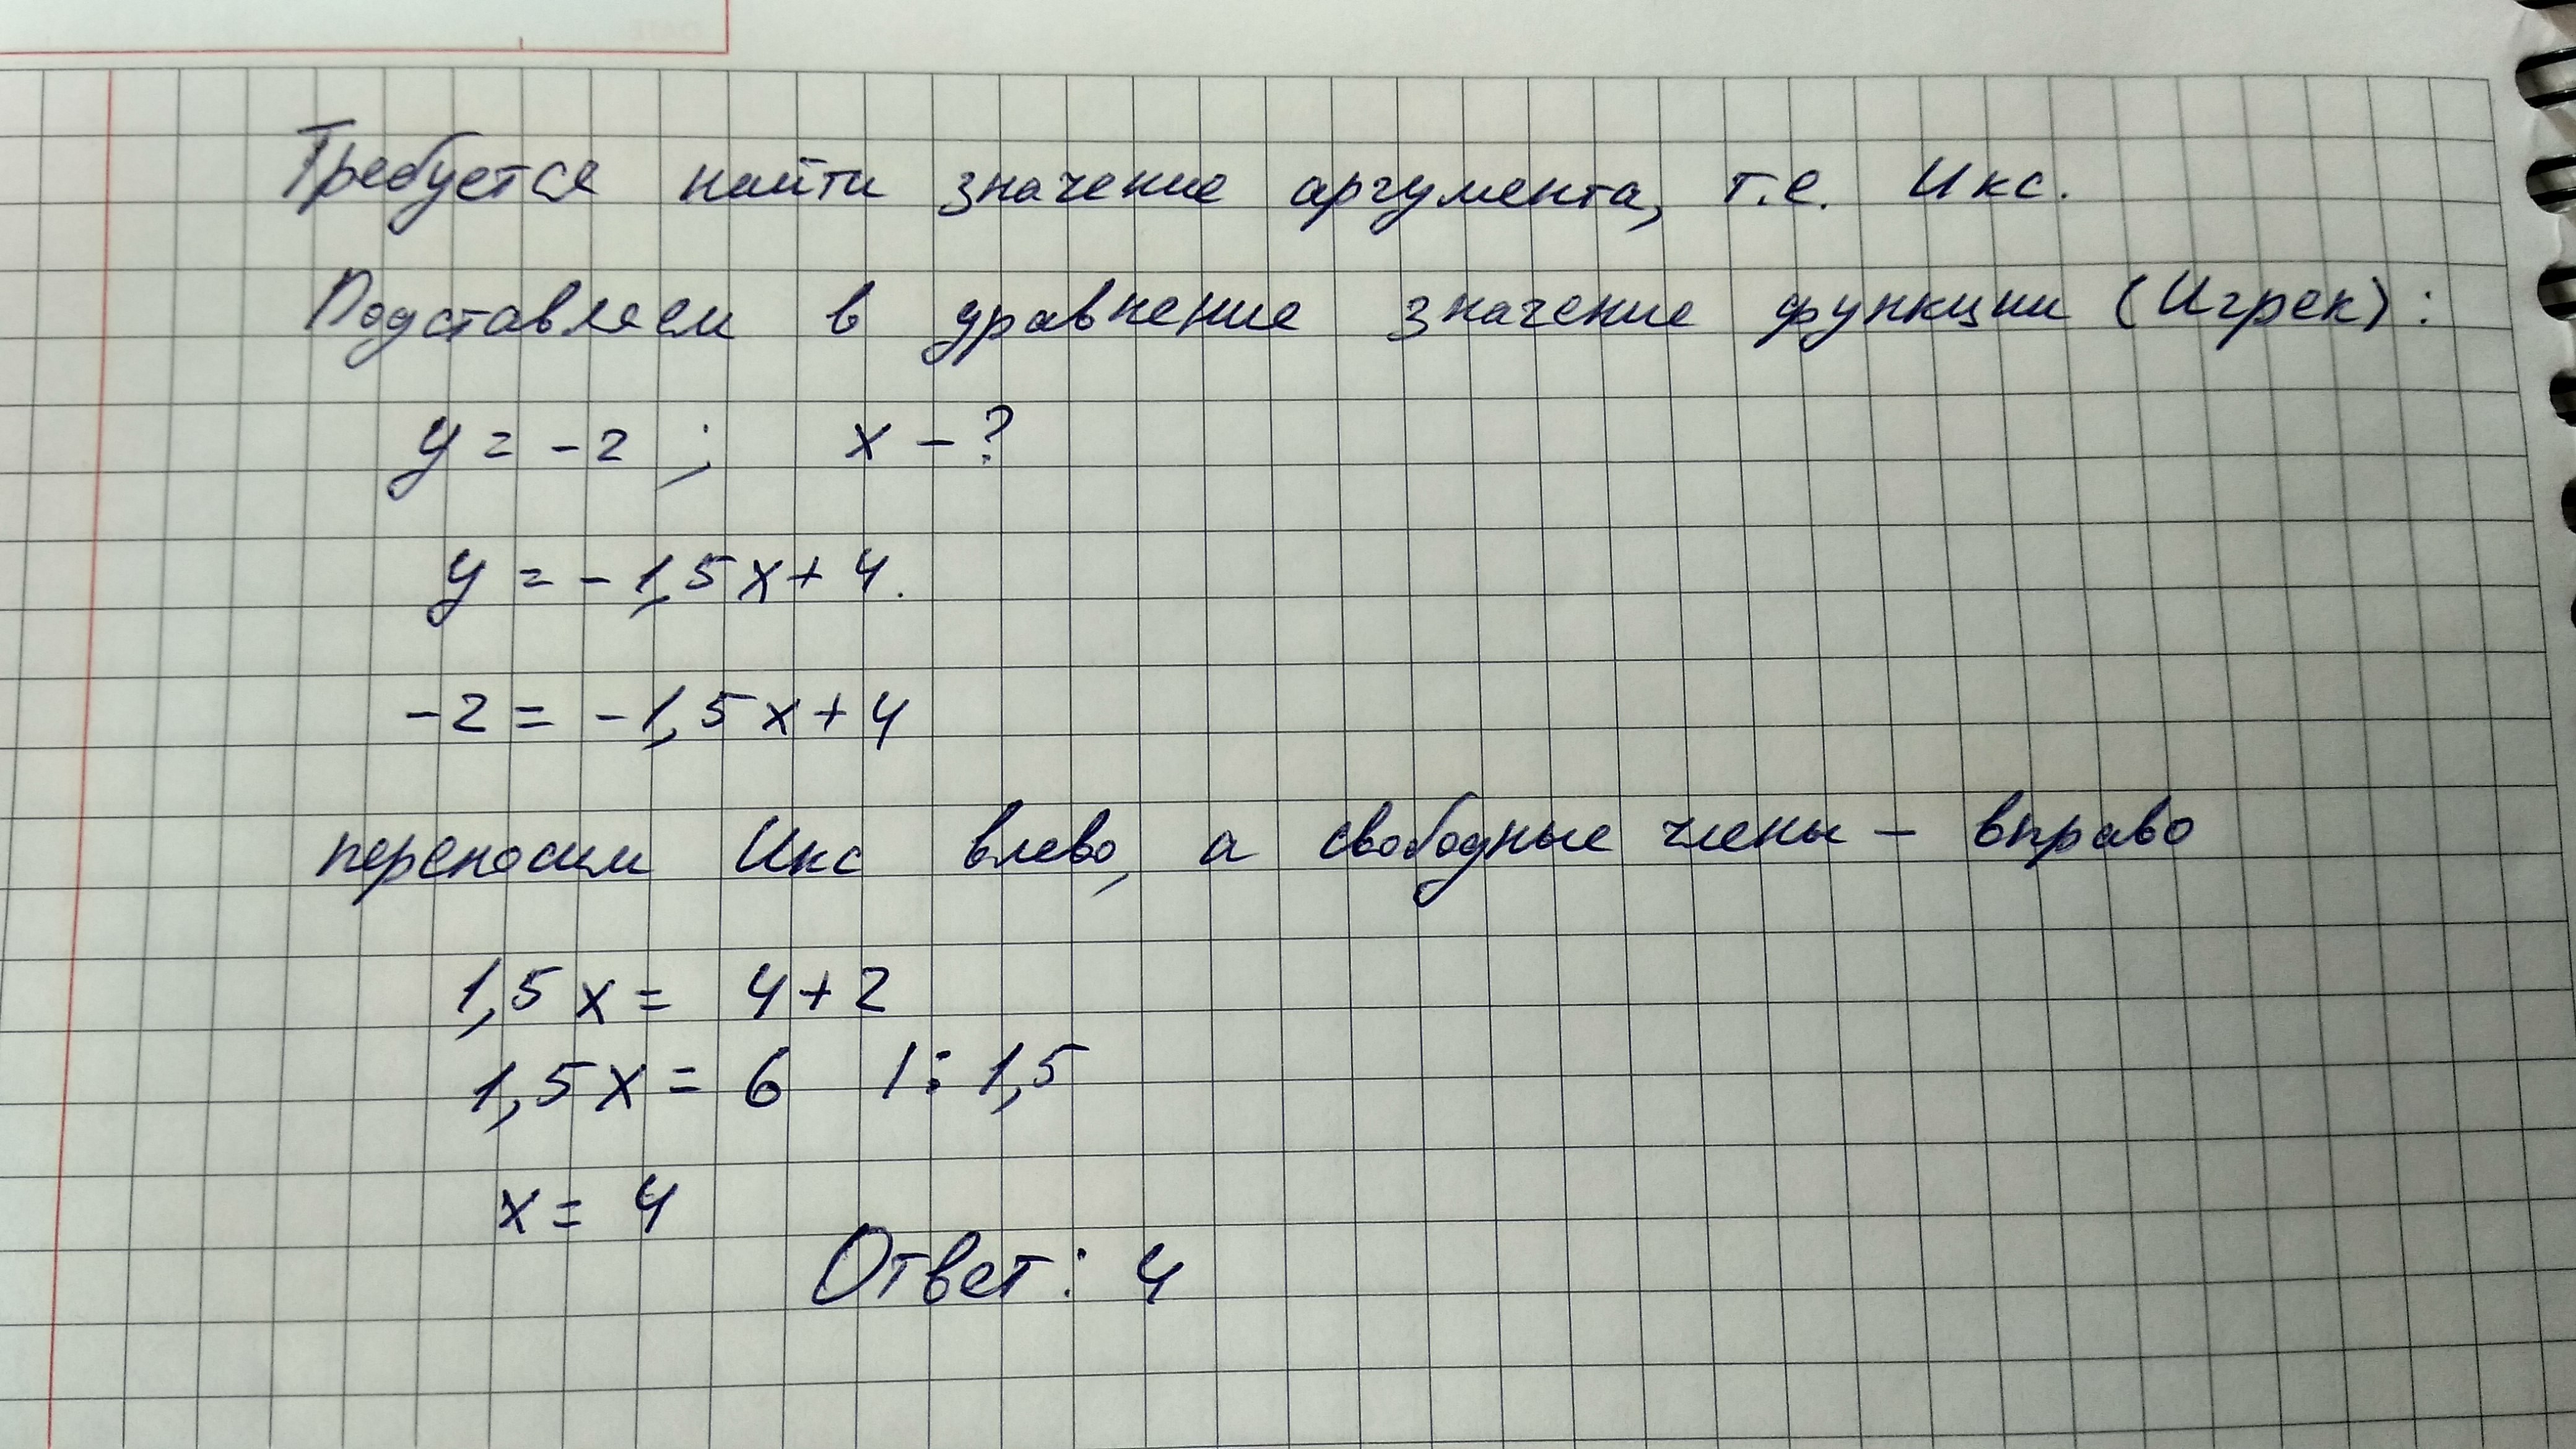 Требуется найти значение аргумента, т.е. Икс.
Подставляем в уравнение значение функции (Игрек):
y = -2 ; x - ?
y = -1,5x + 4.
-2 = -1,5x + 4
переносим Икс влево, а свободные члены - вправо
1,5x = 4 + 2
1,5x = 6 | : 1,5
x = 4
Ответ: 4